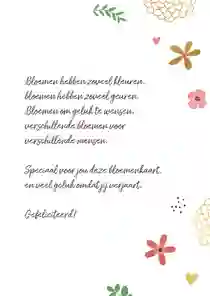 Bloemen hebben zoveel kleuren,
bloemen hebben zoveel geuren.
Bloemen om geluk te wensen,
verschillende bloemen voor
verschillende mensen.
Speciaal voor jou deze bloemenkaart,
en veel geluk omdat jij verjaart.
Gefeliciteerd!